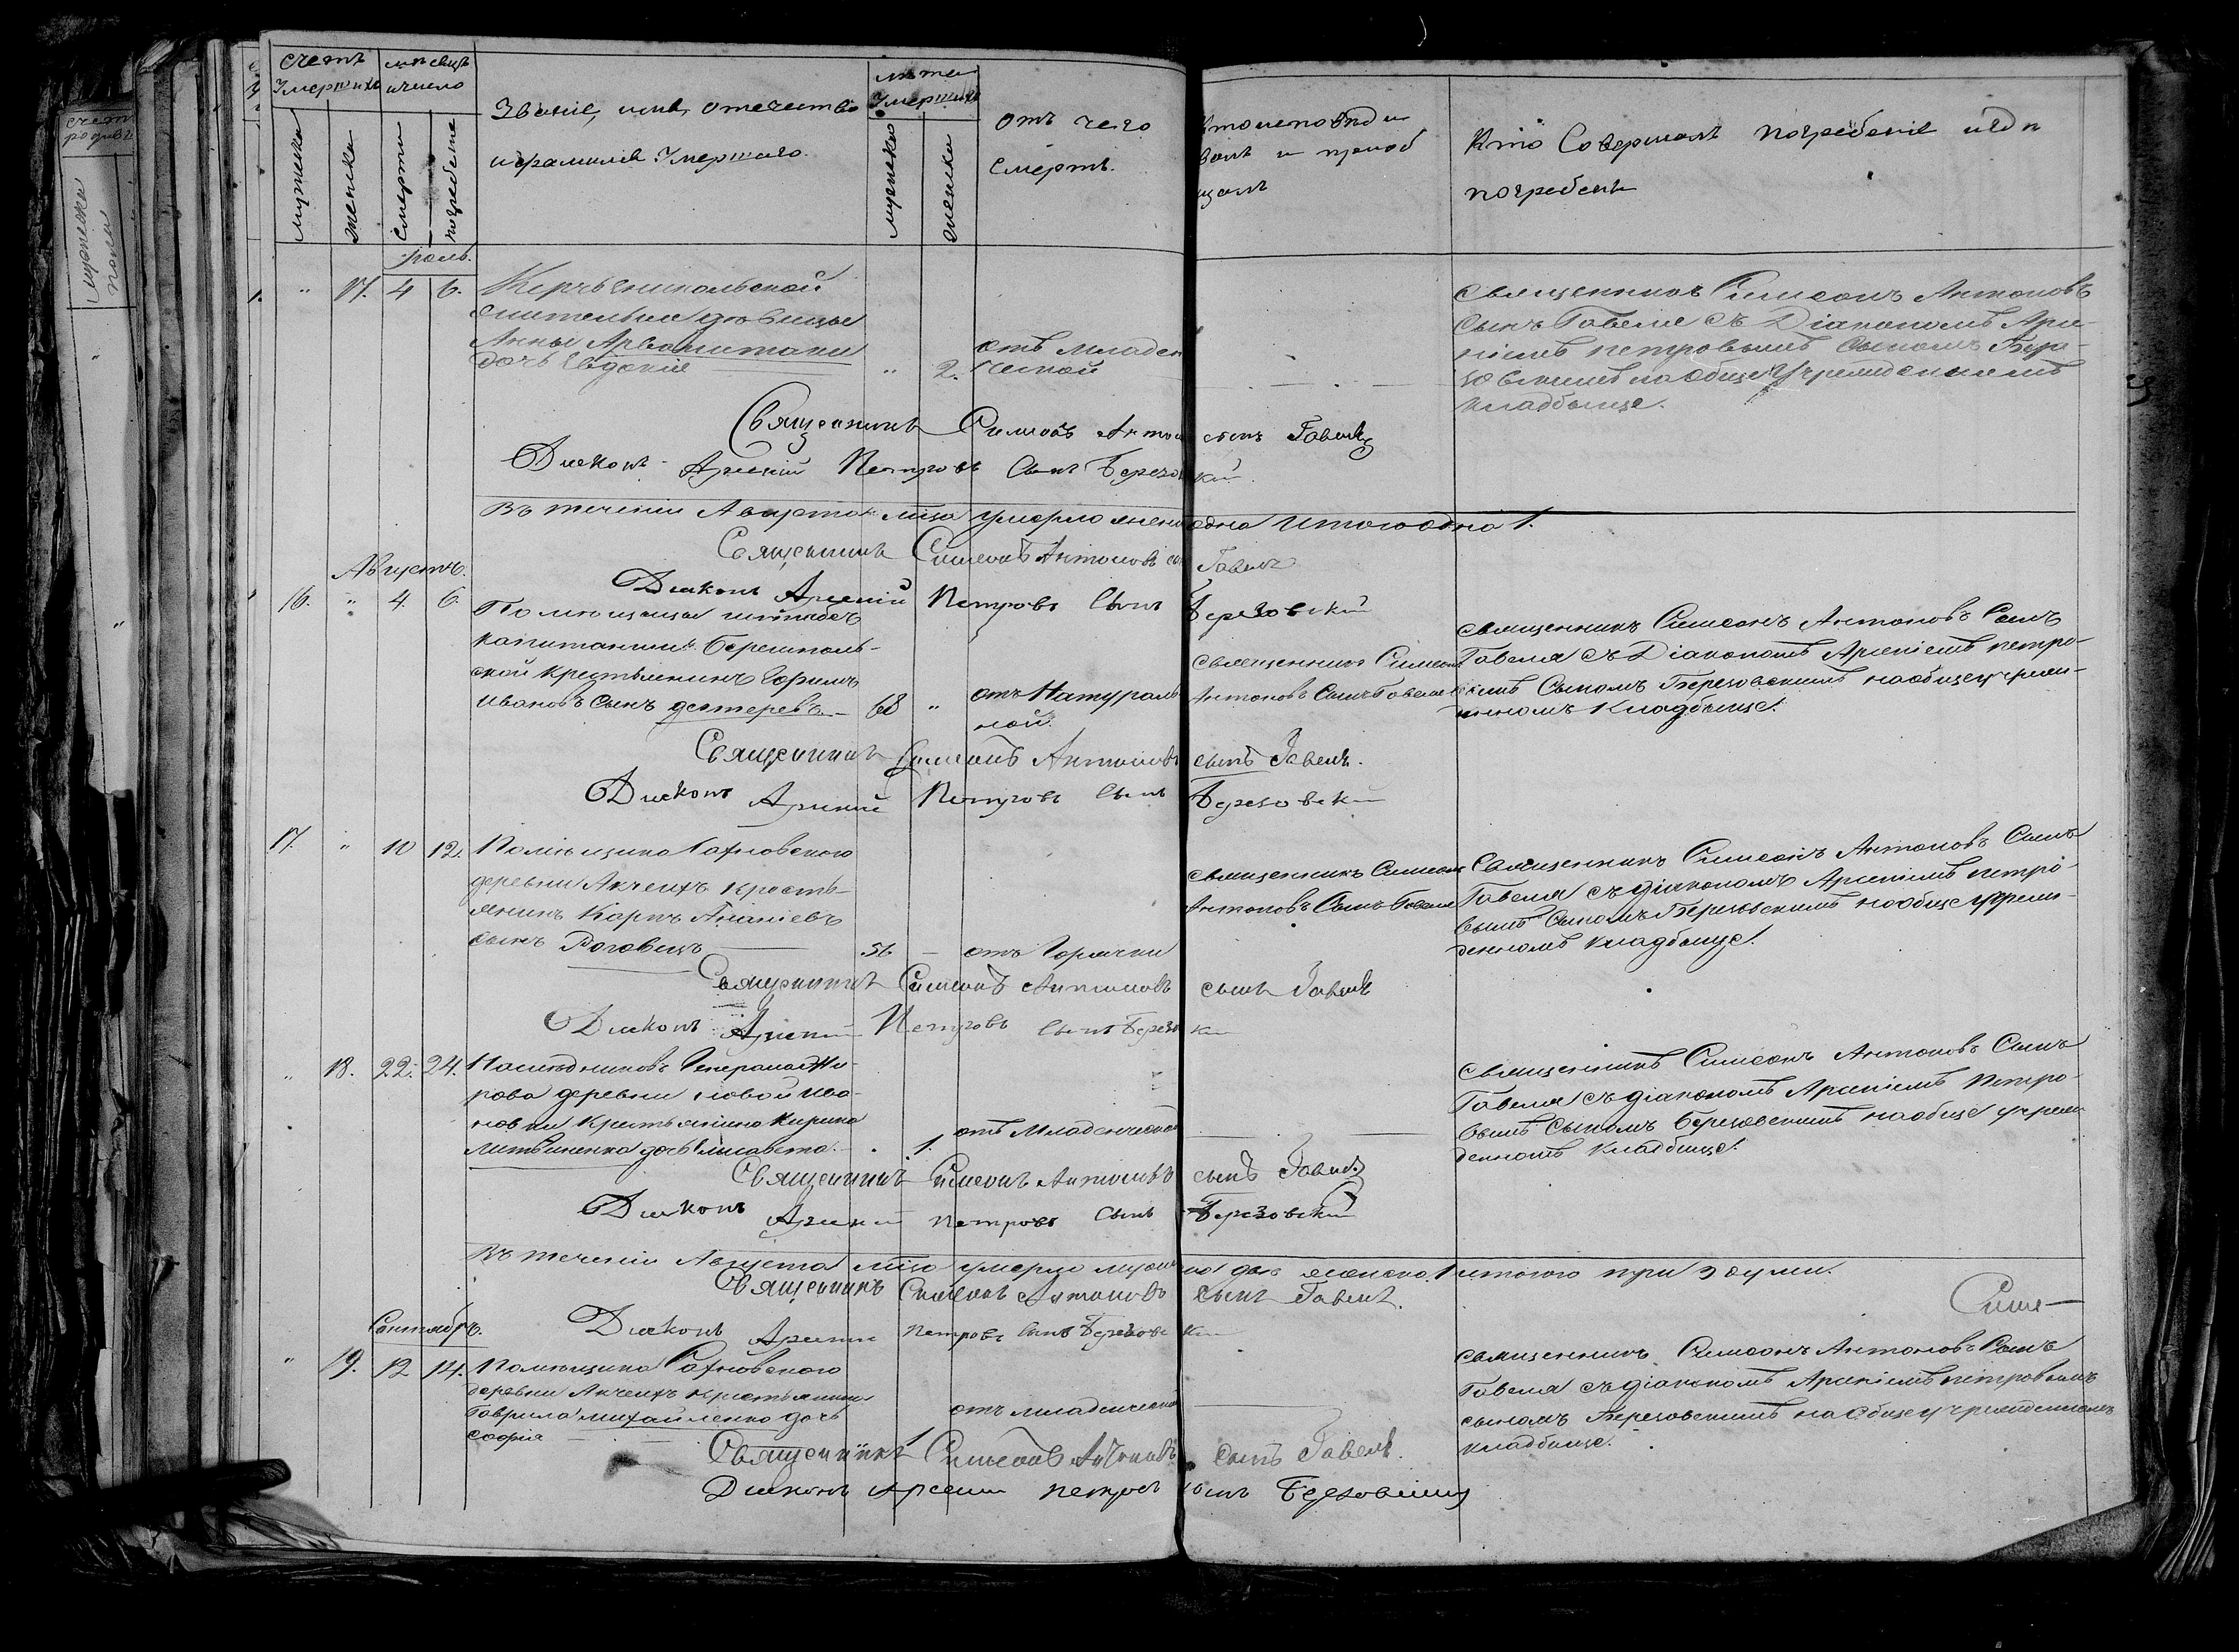 счетъ Умершихъ
мѣсяцъ и число
Званіе, имя, отечество
и фамилія Умершаго.
лѣта Умершихъ
отъ чего
Смерть.
Кто Совершалъ погребеніе и гдѣ
погребенъ
мужска
женска
Смерти
погребенія
мужска
женска
17. 4 6.
Анны
дочь Евдокія
2.
отъ Младен
ческой
Священникъ Симеонъ Антоновъ
Сынъ Гавеля съ Діакономъ Арсе-
ніемъ петровымъ Сыномъ Бере-
зовскимъ на обще Учрежденномъ
кладбыще.
Священникъ Симеонъ Антон сынъ Гавель
Диаконъ Арсений Петровъ Сынъ Березов кий
Въ теченіи Августа мца умерло женс одна итого одна 1.
Священникъ Симеонъ Антоновъ сы Гавель
Августъ.
Диаконъ Арсений Петровъ Сынъ Березовский
16. " 4. 6.
Помѣщицы штабсъ
капитанши
ской крестьянинъ Ефимъ
Ивановъ Сынъ дегтеревъ
68 "
отъ Натураль
ной.
Священникъ Симеонъ
Антоновъ Сынъ Гавеля
священникъ Симеонъ Антоновъ Сынъ
Гавеля съ Діакономъ Арсеніемъ петро-
вымъ Сыномъ Березовскимъ на общеучреж-
денномъ Кладбыще.
Священникъ Симеонъ Антоновъ сынъ Гавель.
Диаконъ Арсений Петровъ Сынъ Березовский
17. " 10 12.
Помѣщика Сахновского
деревни Акчеитъ кресть-
янинъ Карпъ Ананіевъ
сынъ Роговецъ
56 —
отъ Горячки
священникъ Симеонъ
Антоновъ Сынъ Гавеля
Священникъ Симеонъ Антоновъ Сынъ
Гавеля съ діакономъ Арсеніемъ петро-
вымъ Сыномъ Березовскимъ на общеучреж-
денномъ кладбыще.
Священникъ Симеонъ Антоновъ сынъ Гавель
Диаконъ Арсений Петровъ Сынъ Березов кий
" 18. 22. 24.
Наслѣдниковъ Генерала
деревни новой Ива-
новки Крестьянина Кирила
Литвиненка дочь Елисавета.
1.
отъ Младенческой
священникъ Симеонъ Антоновъ Сынъ
Гавеля съ діакономъ Арсеніемъ Петро-
вымъ Сыномъ Березовскимъ на обще учреж
денномъ кладбище.
Священникъ Симеонъ Антоновъ сынъ Гавель
Диаконъ Арсений петровъ Сынъ Березовский
Въ теченіи Августа мца умерло мужск два женска 1 итого три души.
Священникъ Симеонъ Антоновъ сынъ Гавель.
Симе—
Сентябрь.
Диаконъ Арсений петровъ Сынъ Березовс кий
" 19. 12 14.
Помѣщика Сахновского
деревни Акчеитъ крестьянина
Гаврила михайленко дочь
софія
1
отъ младенческой
священникъ Симеонъ Антоновъ Сынъ
Гавеля съ діакономъ Арсеніемъ петровымъ
сыномъ Березовскимъ на общеучрежденномъ
кладбище.
Священникъ Симеонъ Антоновъ сынъ Гавель.
Диаконъ Арсений петровъ сынъ Березовский